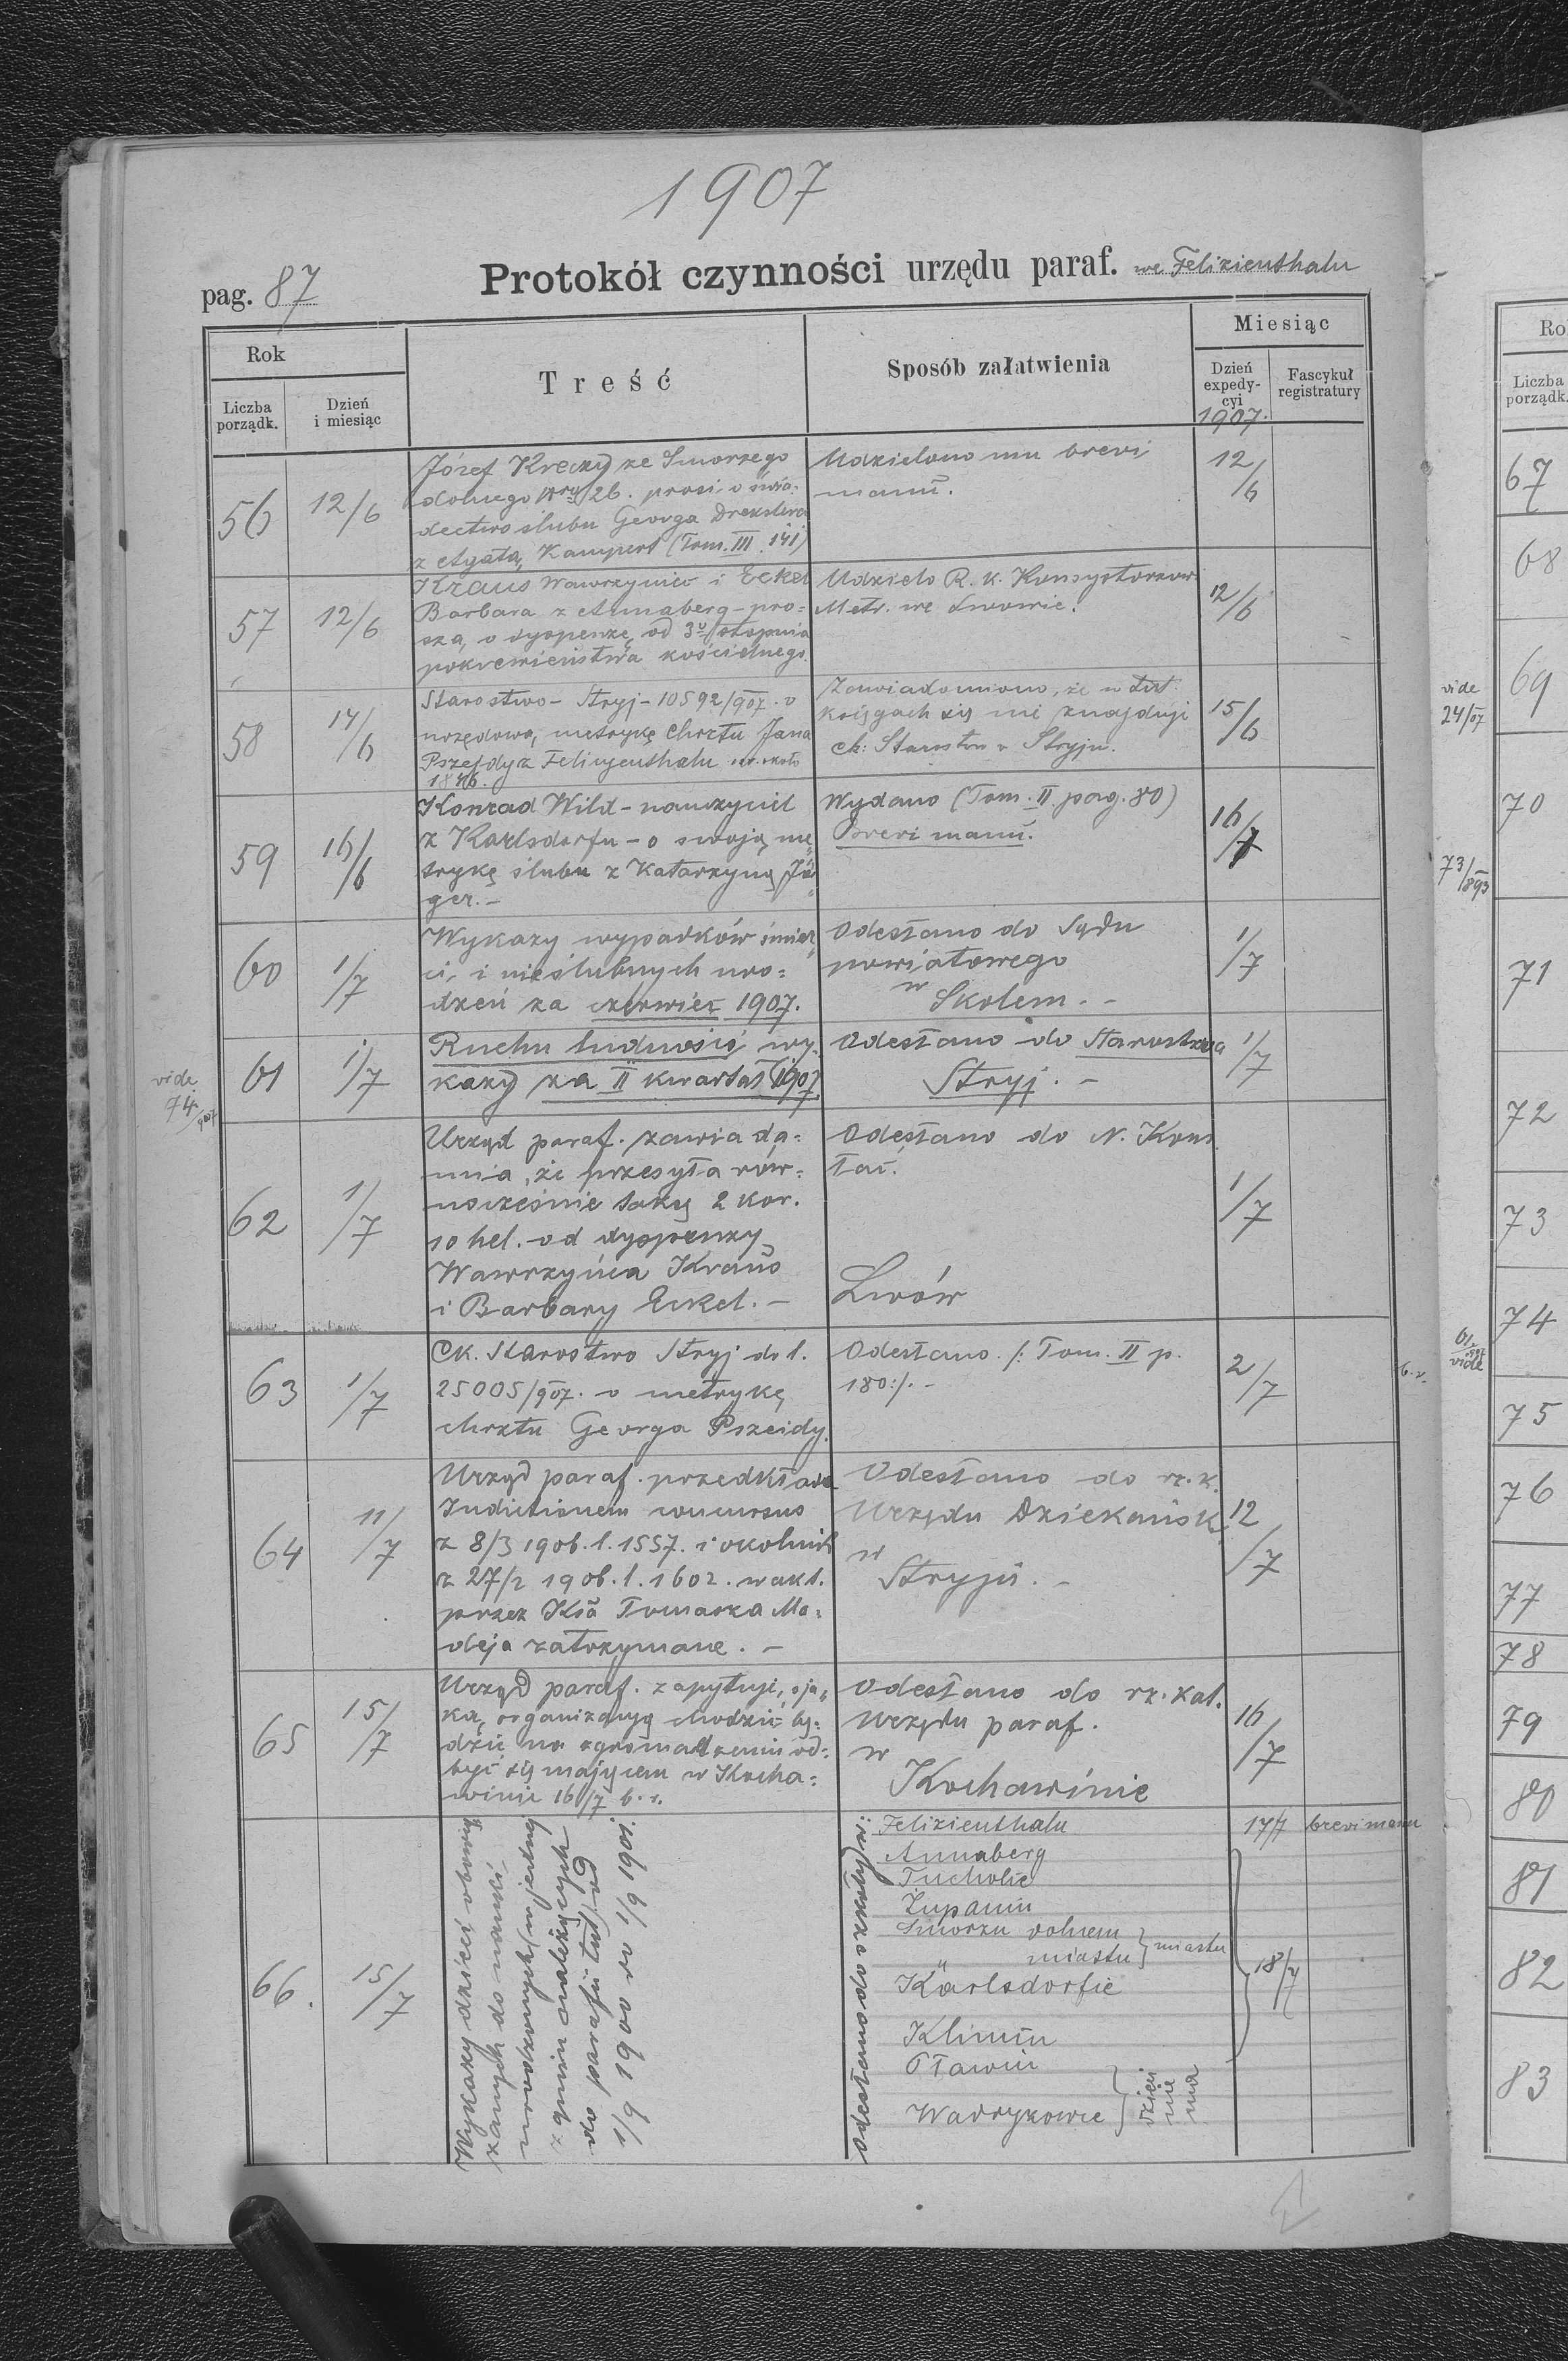 1907
pag. 87 Protokół czynności urzędu paraf. we Felizienthalu
Rok
Treść
Sposób załatwienia
Miesiąc
Liczba porządk.
Dzień i miesiąc
Dzień expedycyi 1907.
Fascykuł registratury
56 12/6
Józef Kreczy ze Smorzego
dolnego Nru 26. prosi o świa-
dectwo ślubu Georga Drexlera
z Agatą Kampert (Tom. III. 141)
Udzielono mu brevi
manu.
12/6
57 12/6
Kraus Wawrzyniec i Eckel
Barbara z Annaberg - pro-
szą o dyspenzę od 3o stopnia
pokrewieństwa kościelnego.
Udziela R. k. Konsystorzowi
Metr. we Lwowie.
12/6
58 14/6
Starostwo - Stryj - 10592/907. o
urzędową metrykę chrztu Jana
Pszejdy z Felizienthalu ur. około
1846.
Zawiadomiono, że w tut.
księgach się nie znajduje
ck: Starostwo w Stryju.
15/6
59 16/6
Konrad Wild - nauczyciel
z Karlsdorfu - o swoją me-
trykę ślubu z Katarzyną Jä-
ger. -
Wydano (Tom. II. pag. 80)
Brevi manu.
16/7
60 1/7
Wykazy wypadków śmier-
ci, i nieślubnych uro-
dzeń za czerwiec 1907.
Odesłano do Sądu
powiatowego
w
Skolem. -
1/7
vide
74/907
61 1/7
Ruchu ludności wy-
kazy za II kwartał 1907.
Odesłano do Starostwa
Stryj. -
1/7
62 1/7
Urząd paraf. zawiada-
mia, że przesyła rów-
nocześnie taksę 2 kor.
10 hel. od dyspenzy
Wawrzyńca Kraus
i Barbary Eckel. -
Odesłano do N. Kons.
łać.
Lwów
1/7
63 1/7
Ck. Starostwo Stryj do l.
25005/907. o metrykę
chrztu Georga Pszeidy.
Odesłano. /: Tom. II p.
180:/. -
2/7
64 11/7
Urząd paraf. przedkłada
Indictionem concursus
z 8/3 1906. l. 1557. i okolnik
z 27/2 1906. l. 1602. w akt.
przez Ksa Tomasza Ma-
deja zatrzymane. -
Odesłano do rz. k.
Urzędu Dziekańsk.
w
Stryju. -
12/7
65 15/7
Urząd paraf. zapytuje, o ja-
ką organizacyę chodzić bę-
dzie na zgromadzeniu od-
być się mającem w Kocha-
winie 16/7 b. r.
Odesłano do rz. kat.
Urzędu paraf.
w
Kochawinie
16/7
66. 15/7
Wykazy dzieci obowią-
zanych do nauki,
urodzonych w jednej
z gmin należących
do parafii tut. od
1/9 1900 do 1/9 1901.
Odesłano do szkoły w:
Felizienthalu 17/7 brevi manu
Annaberg
Tucholce
Żupaniu
Smorzu dolnem
" miastu } miastu
Karlsdorfie
Klimcu
Oławiu
Wadrykowce
} dzieci nie ma
18/7
Ro
Liczba
porządk.
67
68
vide
24/07
69
70
73/893
71
72
73
74
61/907
vide
75
76
77
78
79
80
81
82
83